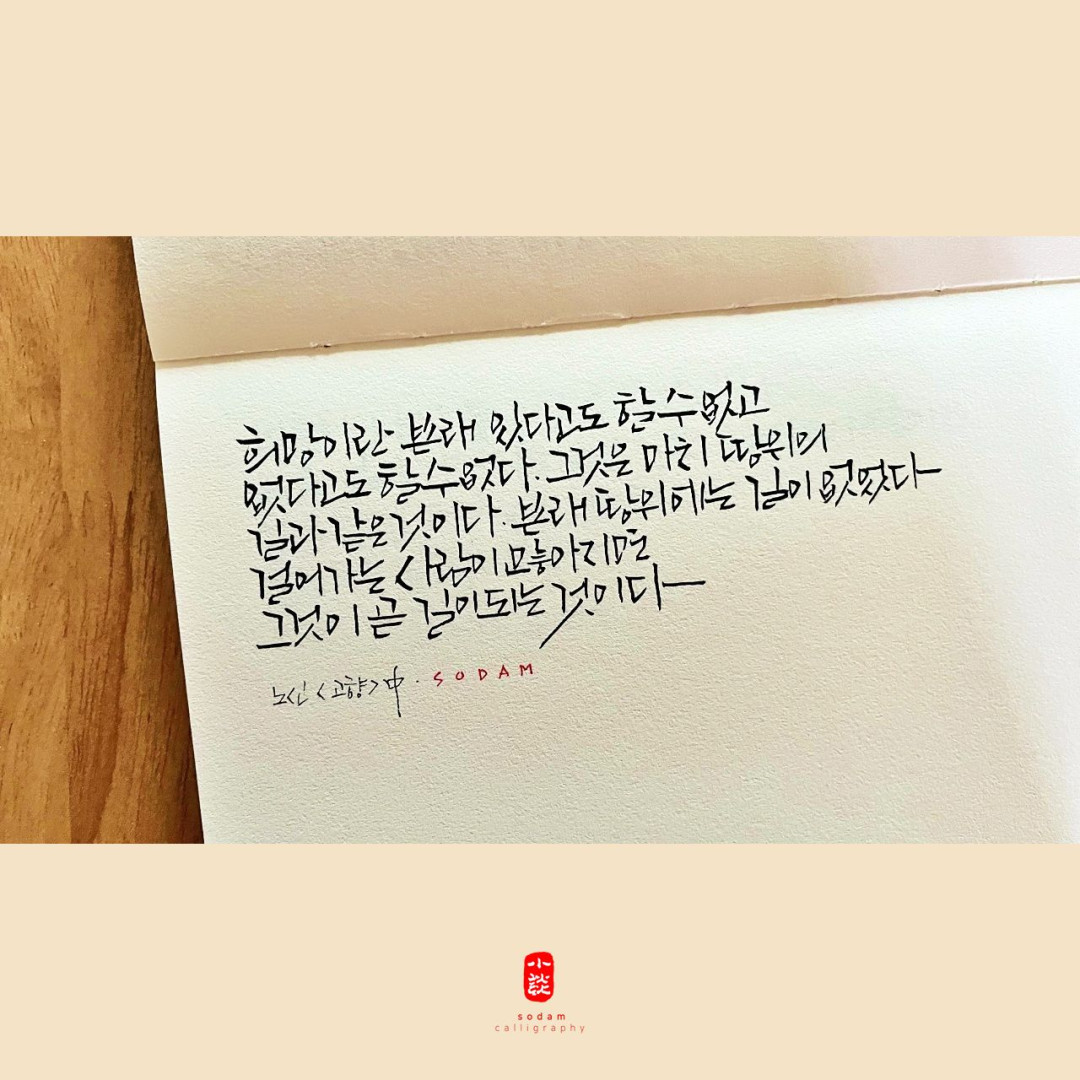 희망이란 본래 있다고도 할 수 없고
없다고도 할 수 없다. 그것은 마치 땅위의
길과 같은 것이다. 본래 땅위에는 길이 없었다
걸어가는 사람이 많아지면
그것이 곧 길이 되는 것이다
노신 <고향> 中 · SODAM
小談
sodam
calligraphy